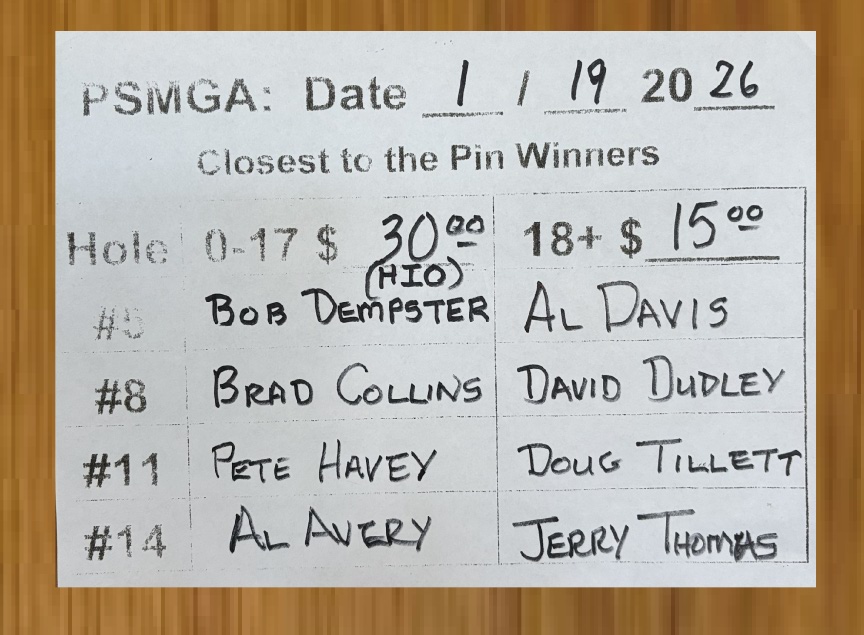 PSMGA: Date 1 / 19 20 26
Closest to the Pin Winners
Hole 0-17 $ 30 00 18+ $ 15 00
(HIO)
#5 BOB DEMPSTER AL DAVIS
#8 BRAD COLLINS DAVID DUDLEY
#11 PETE HAVEY DOUG TILLETT
#14 AL AVERY JERRY THOMAS